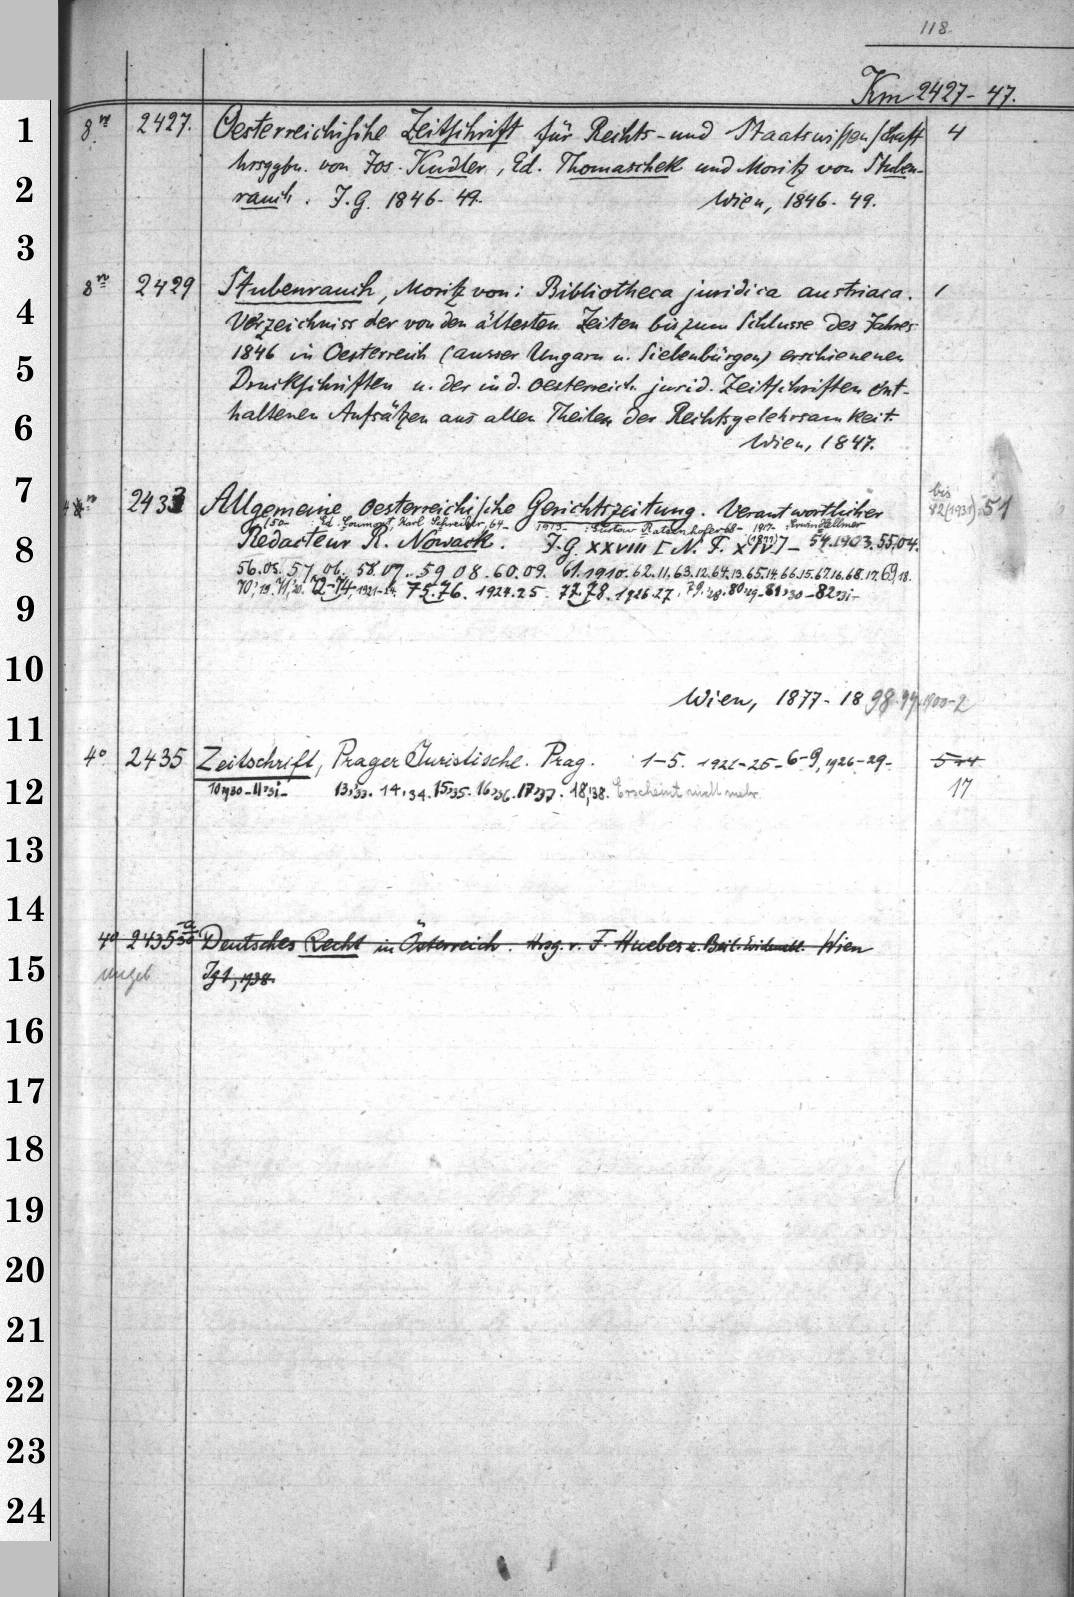 118
Km 2427-47.
1
8° 2427. Oesterreichische Zeitschrift für Rechts- und Staatswissenschaft 4
hrsggbn. von Jos. Kudler, Ed. Thomaschek und Moritz von Stuben-
2
rauch. J.G. 1846-49. Wien, 1846-49.
3
8° 2429 Stubenrauch, Moritz von: Bibliotheca juridica austriaca. 1
4
Verzeichniss der von den ältesten Zeiten bis zum Schlusse des Jahres
1846 in Oesterreich (ausser Ungarn u. Siebenbürgen) erschienenen
5
Druckschriften u. der in d. oesterreich. jurid. Zeitschriften ent-
haltenen Aufsätzen aus allen Theilen der Rechtsgelehrsamkeit.
6
Wien, 1847.
7
4° 2433 Allgemeine oesterreichische Gerichtszeitung. Verantwortlicher bis 82(1931) 51
Karl Schreiber, 64- 1913- : Gustav Ratzenhofer 68- 1917- : Erwin Hellmer
8
Redacteur R. Nowack. J.G. XXVIII [N. F. XIV] (1877) - 54.1903. 55.04.
56.05. 57.06. 58.07. 59.08. 60.09. 61.1910. 62.11. 63.12. 64.13. 65.14. 66.15. 67.16. 68.17. 69.18.
9
70,'19. 71,'20. 72-74, 1921-24. 75.76. 1924.25 77.78. 1926.27. 79,'28. 80,'29-81,'30-82,'31-
10
Wien, 1877-1898.99.1900-2
11
4° 2435 Zeitschrift, Prager Juristische. Prag. 1-5. 1921-25-6-9, 1926-29-
12
10,1930-11,'31- 13,'33. 14,'34. 15,'35. 16,'36. 17,'37. 18,'38. Erscheint nicht mehr. 17
13
14
4° 2435 Deutsches Recht in Österreich. Hrsg. v. F. Hueber Wien
15
Jg 1, 1938.
16
17
18
19
20
21
22
23
24